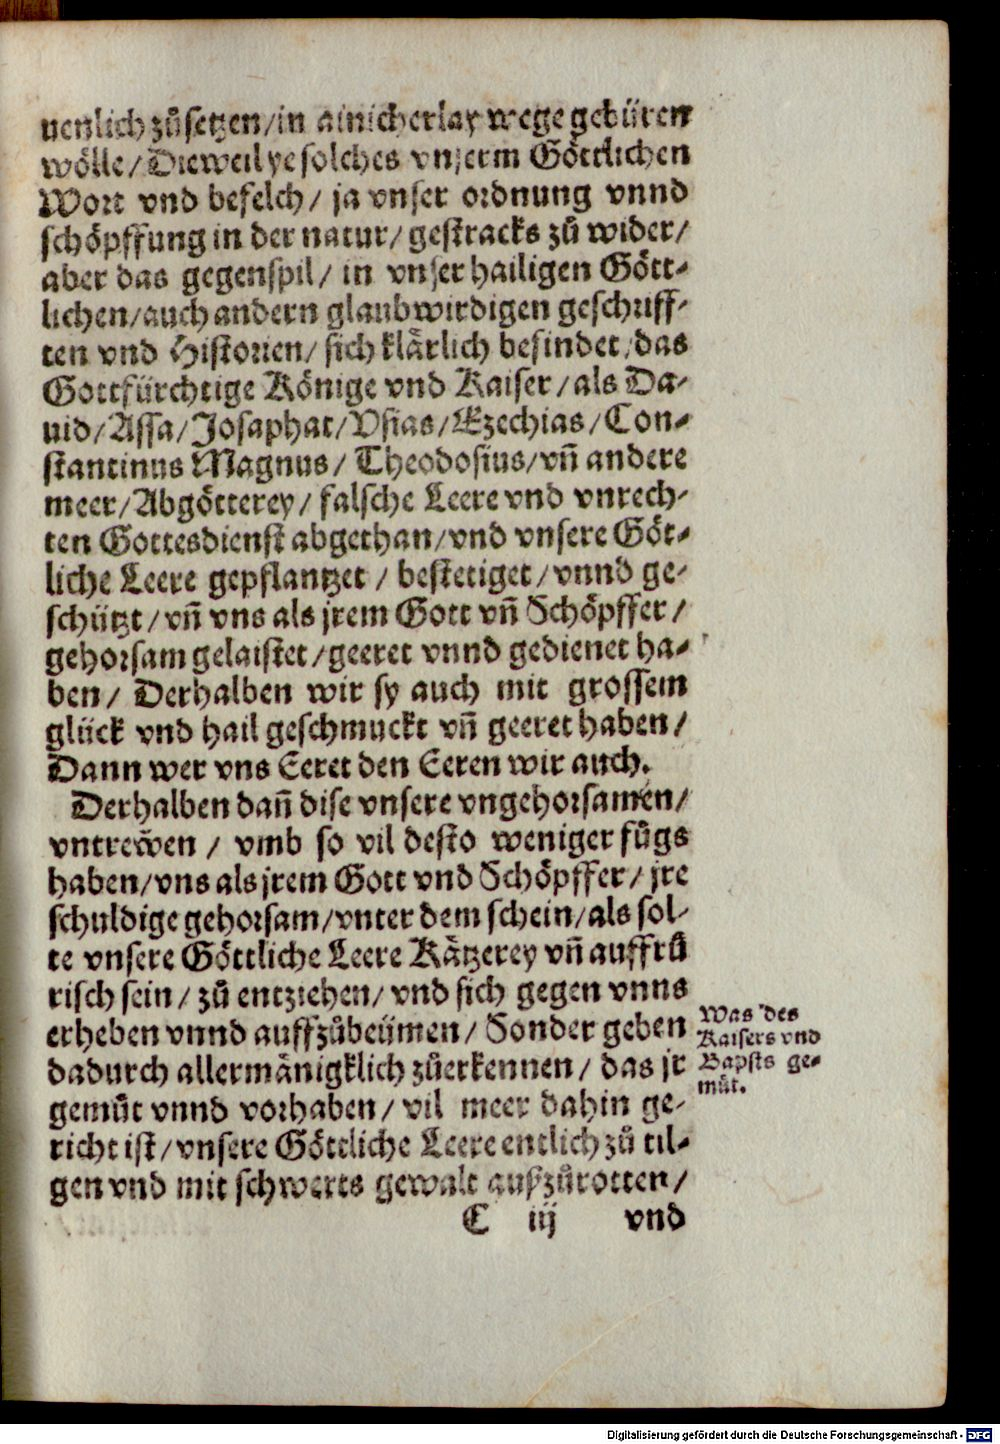 uenlich zůsetzen/in ainicherlay wege gebüren
wölle/Dieweil ye solches vnserm Göttlichen
Wort vnd befelch/ ja vnser ordnung vnnd
schöpffung in der natur/ gestracks zů wider/
aber das gegenspil/ in vnser hailigen Gött-
lichen/auch andern glaubwirdigen geschriff-
ten vnd Historien/ sich klärlich befindet/das
Gottfürchtige Könige vnd Kaiser/als Da-
uid/Assa/Josaphat/Vsias/Ezechias/Con-
stantinus Magnus/ Theodosius/vñ andere
meer/Abgötterey/ falsche Leere vnd vnrech-
ten Gottesdienst abgethan/vnd vnsere Göt-
liche Leere gepflantzet / bestetiget/vnnd ge-
schützt/vñ vns als jrem Gott vñ Schöpffer/
gehorsam gelaistet/geeret vnnd gedienet ha-
ben/ Derhalben wir sy auch mit grossem
glück vnd hail geschmuckt vñ geeret haben/
Dann wer vns Eeret den Eeren wir auch.
Derhalben dañ dise vnsere vngehorsamen/
vntrewen / vmb so vil desto weniger fůgs
haben/vns als jrem Gott vnd Schöpffer/ jre
schuldige gehorsam/vnter dem schein/als sol-
te vnsere Göttliche Leere Kätzerey vñ auffrů
risch sein/ zů entziehen/ vnd sich gegen vnns
erheben vnnd auffzůbeümen/ Sonder geben
dadurch allermänigklich zůerkennen/ das jr
gemůt vnnd vorhaben/ vil meer dahin ge-
richt ist/vnsere Göttliche Leere entlich zů til-
gen vnd mit schwerts gewalt außzůrotten/
C iij vnd
Was des
Kaisers vnd
Bapsts ge-
můt.
Digitalisierung gefördert durch die Deutsche Forschungsgemeinschaft - DFG